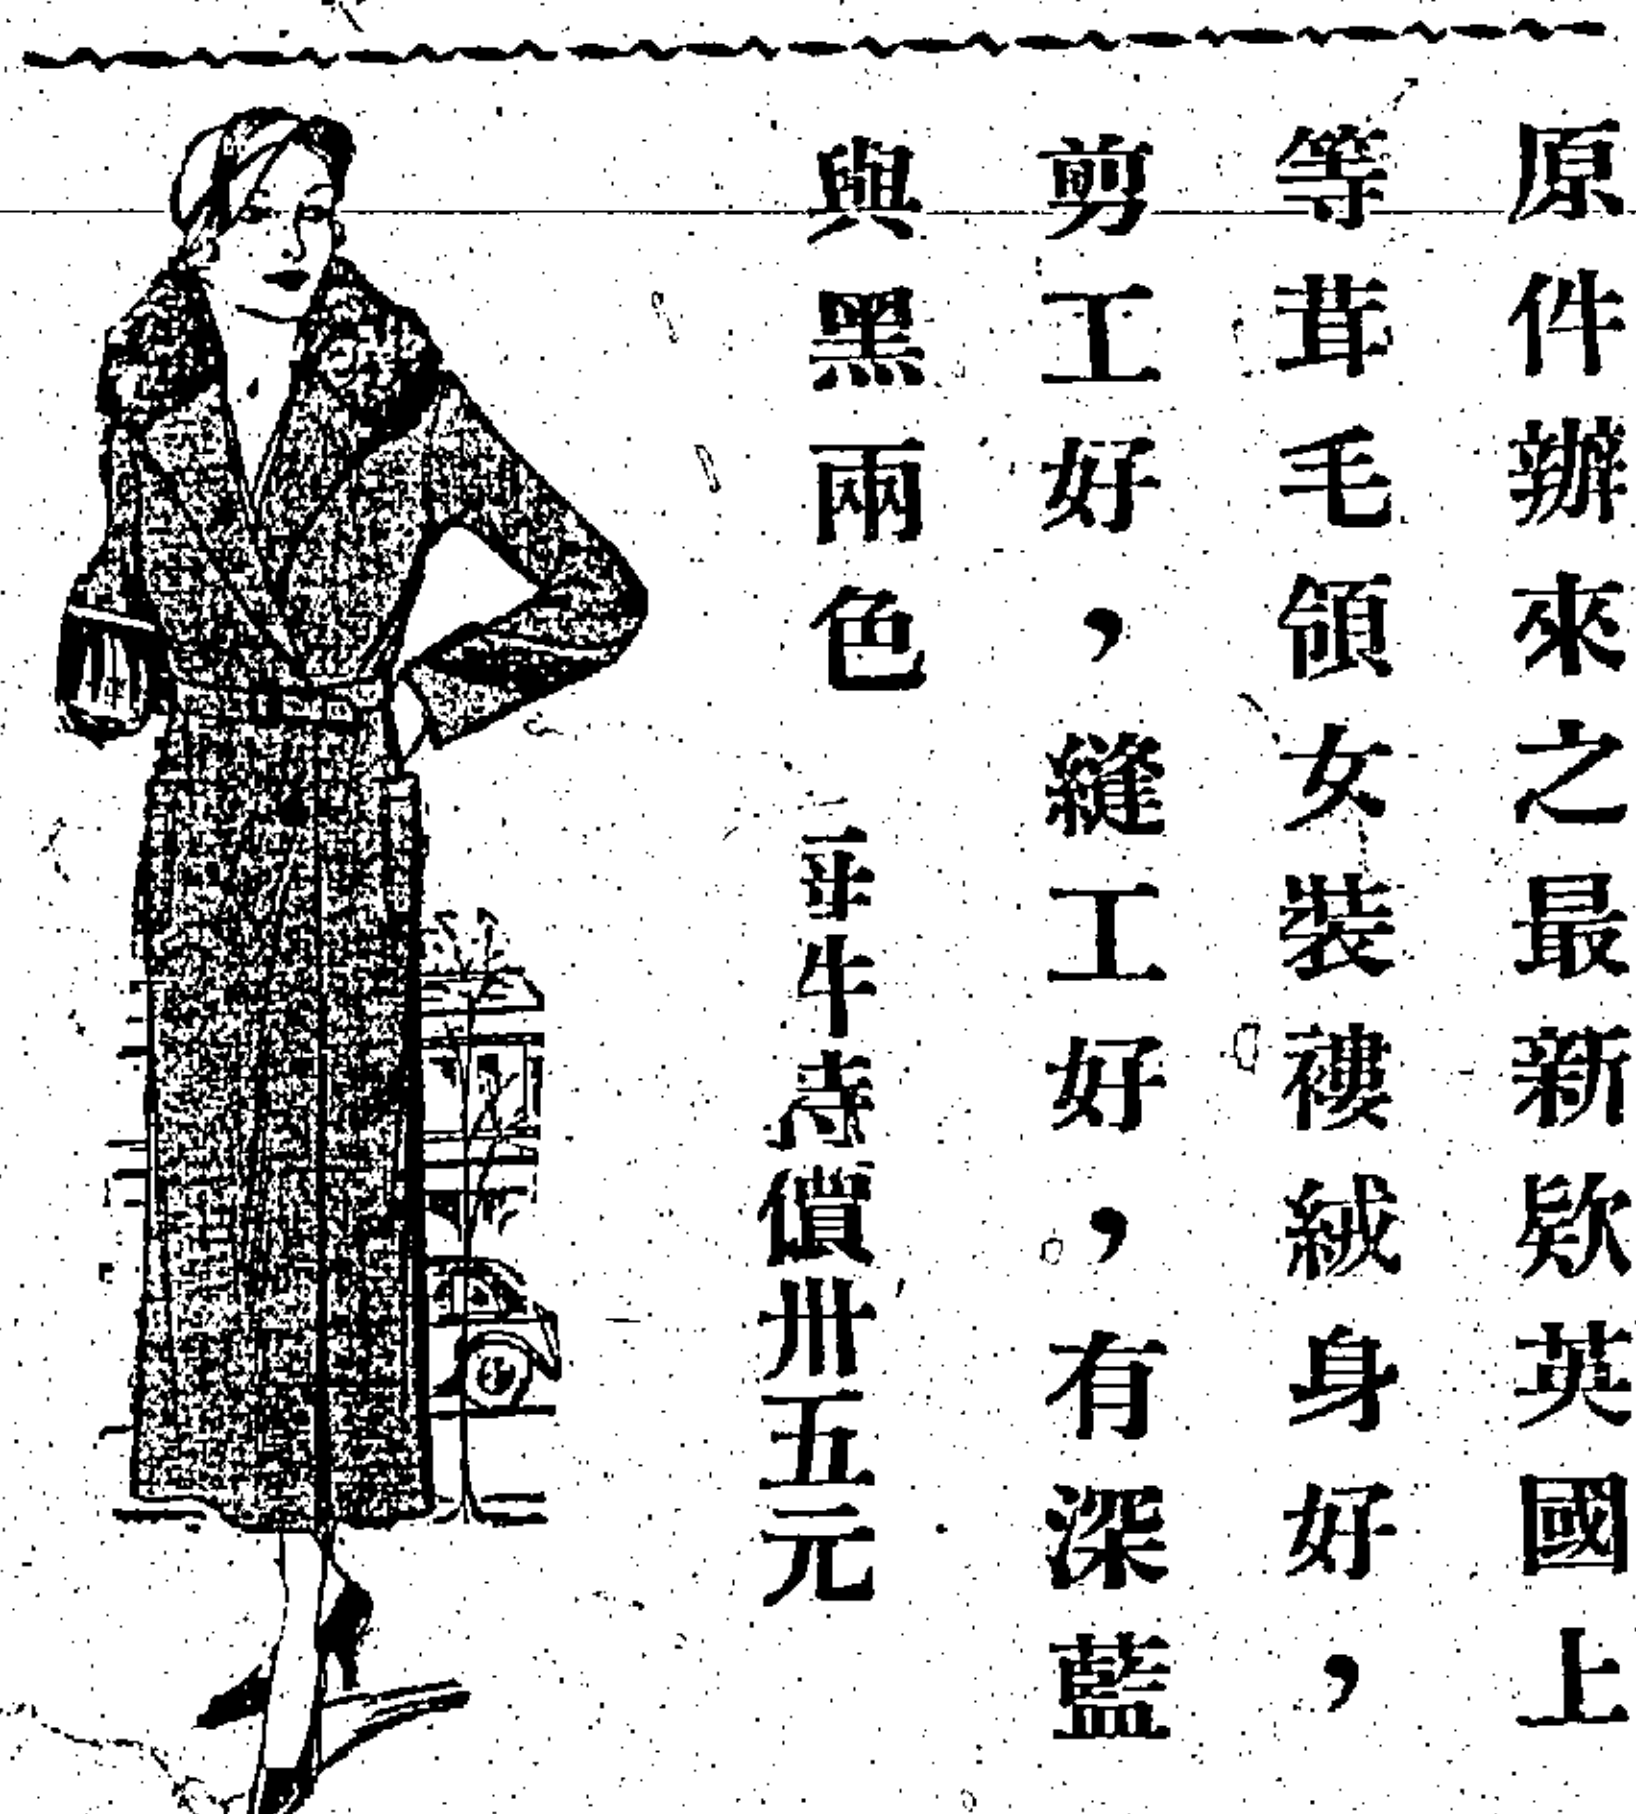 原件辦來之最新欵英國上
等茸毛領女裝褸絨身好，
剪工好，縫工好，有深藍
與黑兩色 每件特價卅五元